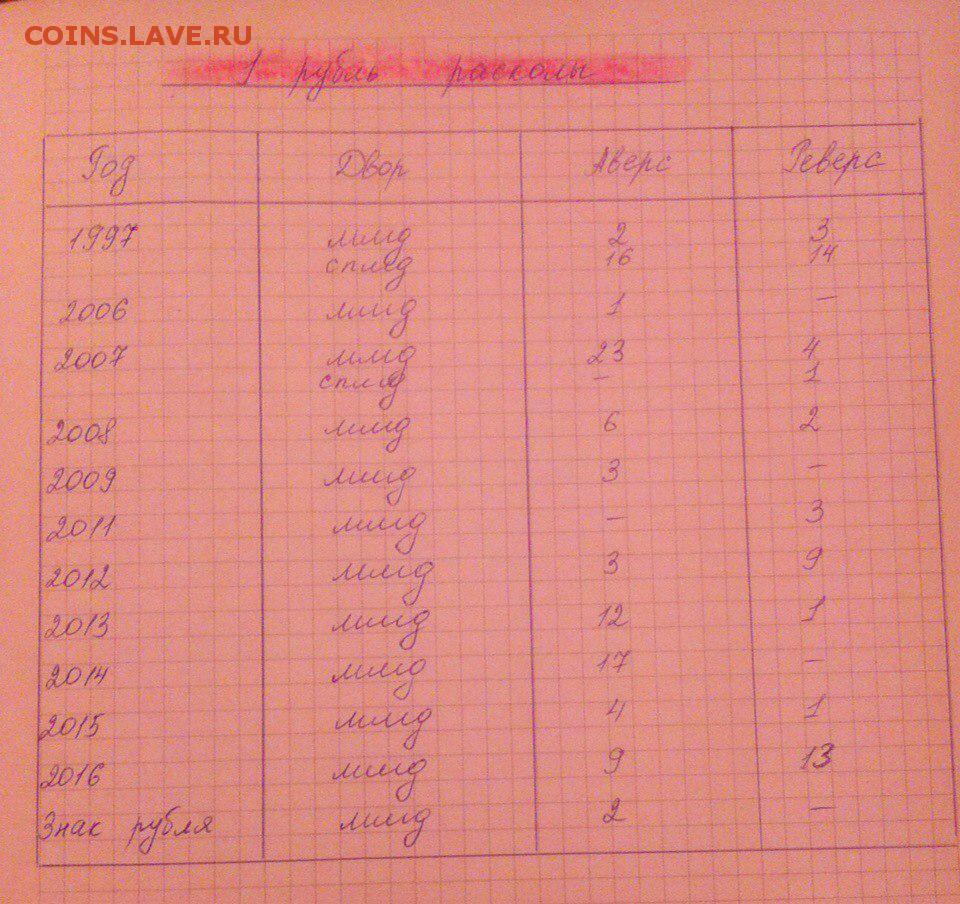 COINS.LAVE.RU
1 рубль расколы
Год Двор Аверс Реверс
1997 ммд 2 3
спмд 16 14
2006 ммд 1 —
2007 ммд 23 4
спмд — 1
2008 ммд 6 2
2009 ммд 3 —
2011 ммд — 3
2012 ммд 3 9
2013 ммд 12 1
2014 ммд 17 —
2015 ммд 4 1
2016 ммд 9 13
Знак рубля ммд 2 —